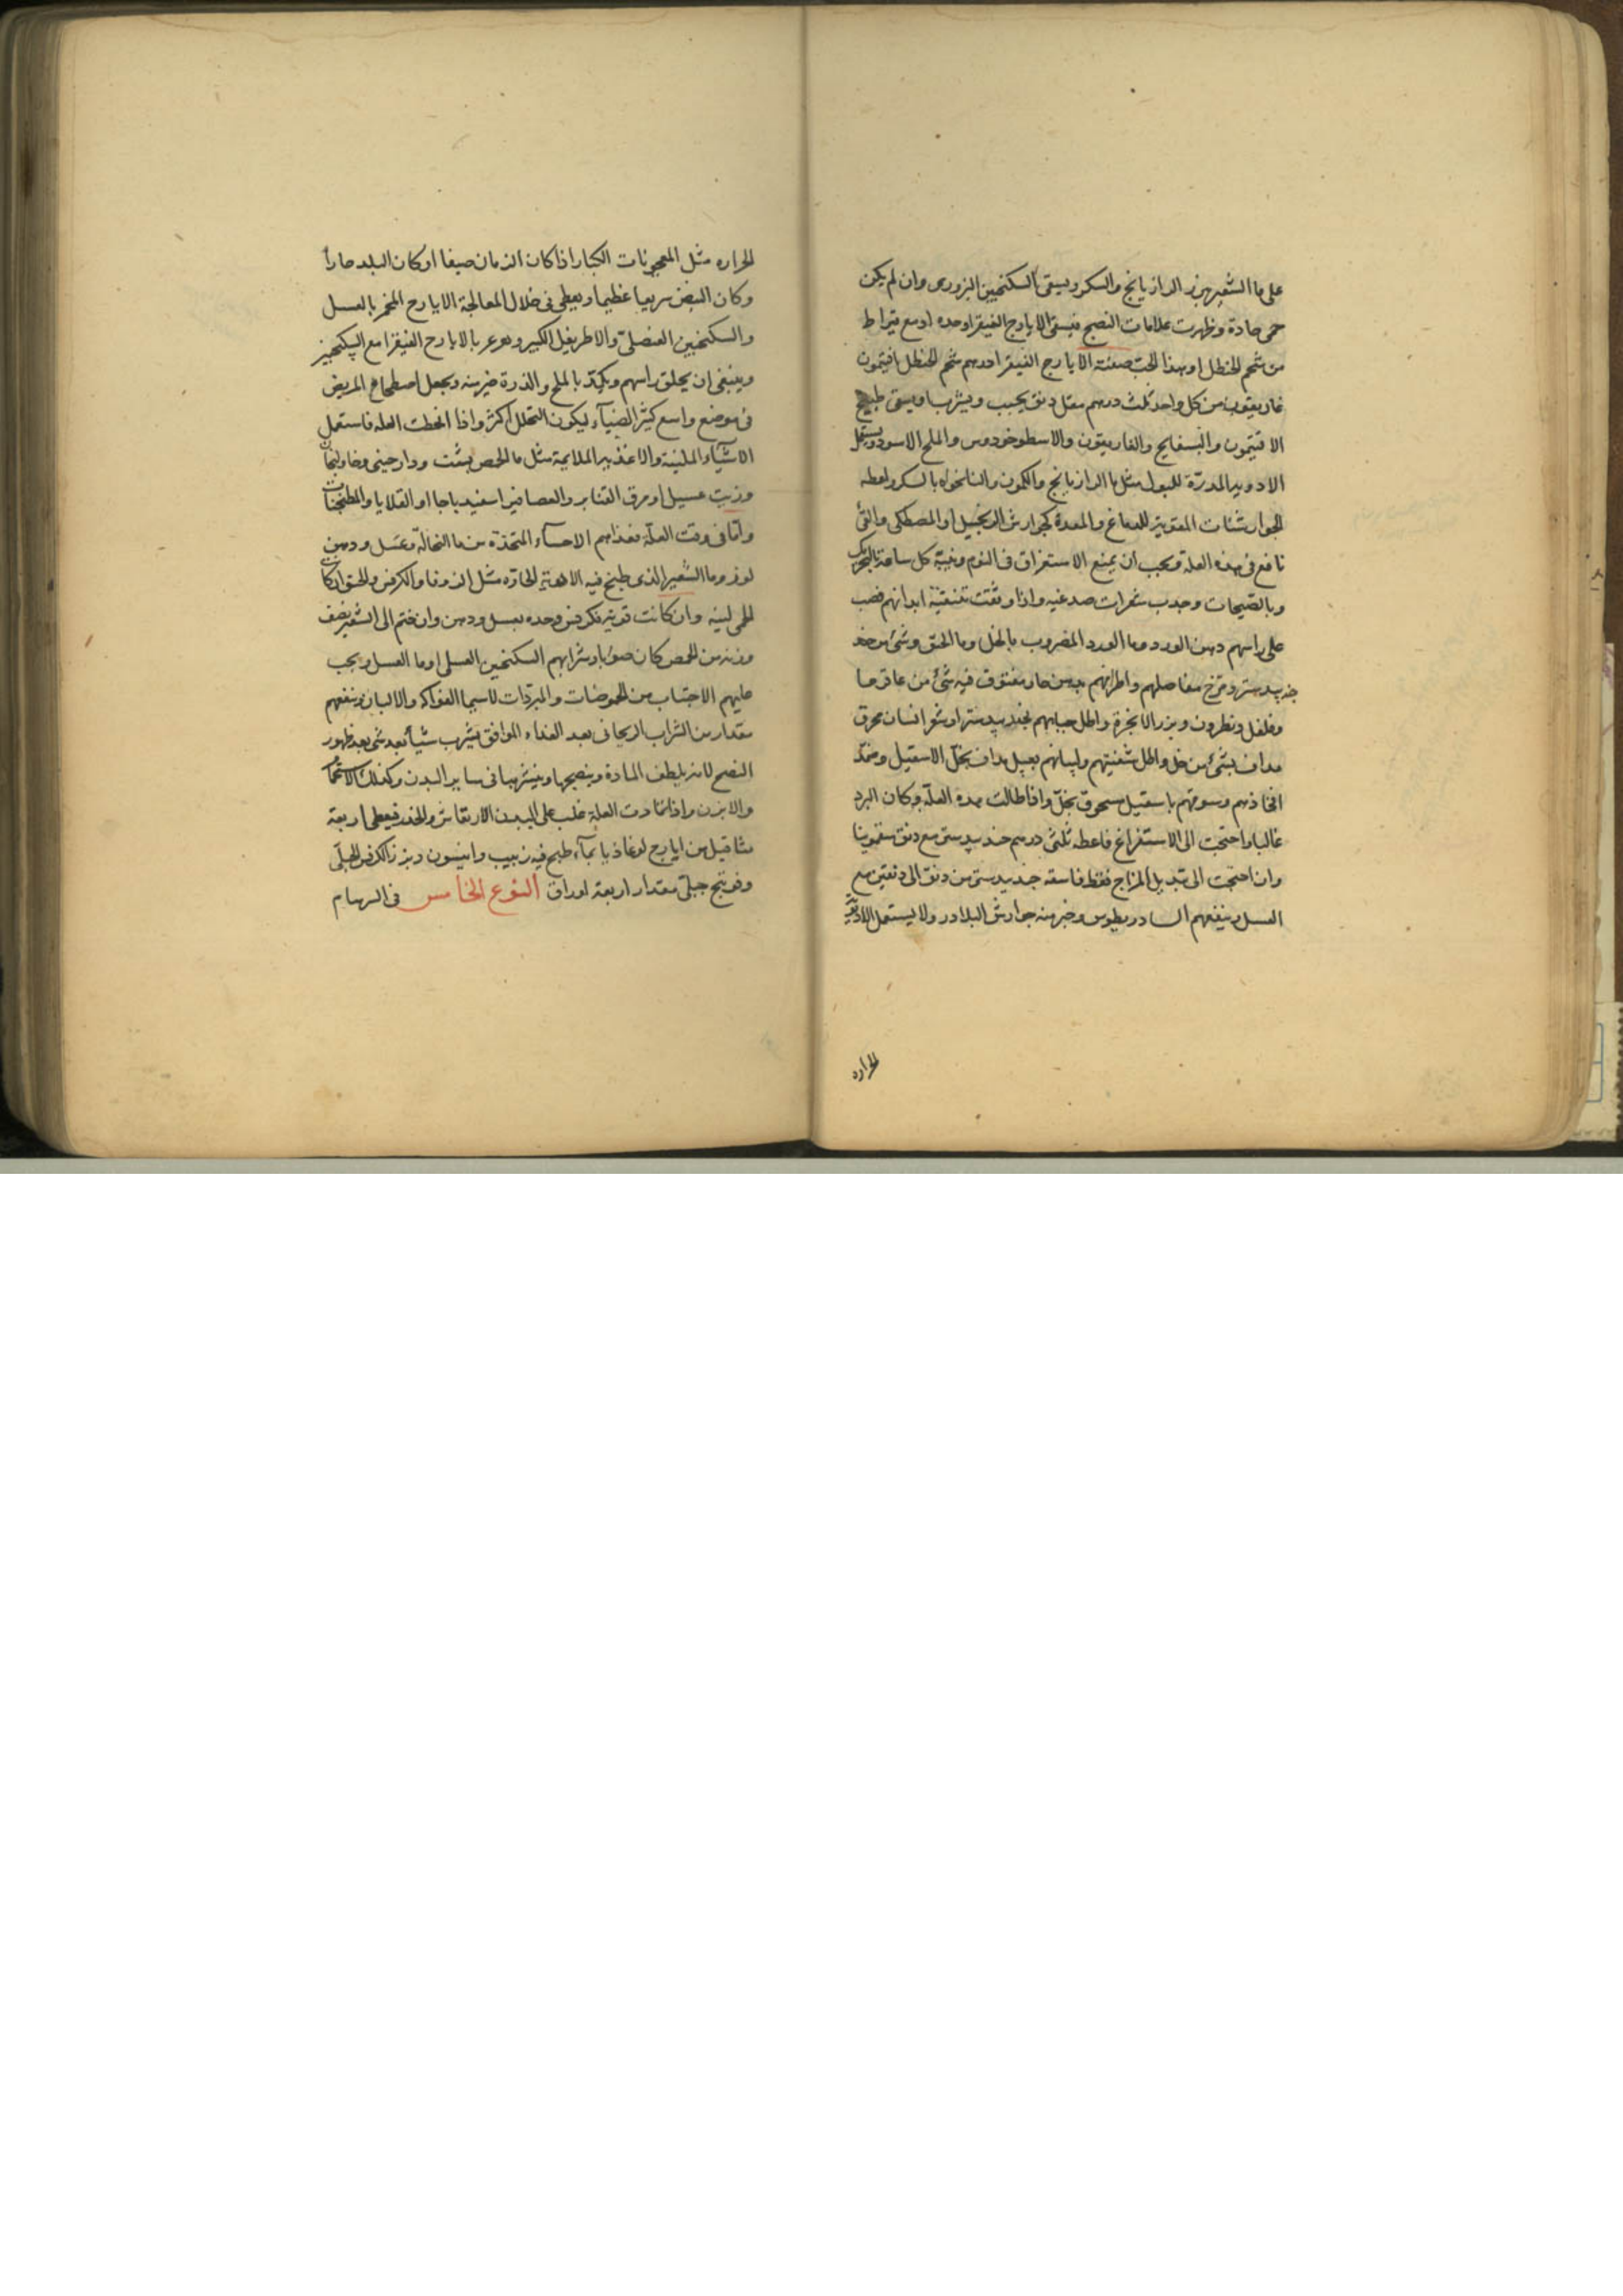 على ماالشعير بزر الرازيانج والسكر ويسقى السكنجبين البزورى وان لم يكن
حمى حادة وظهرت علامات النضج فيسقى الايارج الفيقرا وحده او مع قيراط
من شحم الحنظل او بهذا الحب صفته الايارج الفيقرا درهم شحم الحنظل افتيمون
غاريقون من كل واحد ثلث درهم مقل دنق يحبب ويشرب او يسقى طبيخ
الافتيمون والبسفايج والغاريقون والاسطوخودوس والملح الاسود ويستعمل
الادويه المدرّة للبول مثل ماالرازيانج والكمون والنانخواه بالسكر واعطه
الجوارشنات المقوية للدماغ والمعدة كجوارش الزنجبيل او المصطكى والقئ
نافع فى هذه العلة ويجب ان يمنع الاستغراق فى النوم وينبه كل ساعة بالتحريك
وبالصيحات وجذب شعرات صدغيه واذا وثقت بتنقية ابدانهم فصب
على راسهم دهن الورد وما الورد المضروب بالخل وما الحبق وشئ من
جندبيدستر ومرخ مفاصلهم واطرافهم بدهن حار مفتوق فيه شئ من عاقرقرحا
وفلفل ونطرون وبزر الانجرة واطل جباههم بجندبيدستر او شعر انسان محرق
مداف بشئ من خل واطل شفتيهم ولسانهم بعسل مداف بخل الاسقيل وضمد
افخاذهم وسوقهم باسقيل مسحوق بخل واذا طالت مده العلة وكان البرد
غالبا واحتجت الى الاستفراغ فاعطه ثلثى درهم جندبيدستر مع دنق سقمونيا
وان احتجت الى تبديل المزاج فقط فاسقه جندبيدستر من دنق الى دنقين مع
العسل وينفعهم السادريطوس وخير منه جوارش البلادر ولا يستعمل الادوية
الحراره
الحراره مثل المعجونات الكبار اذا كان الزمان صيفا او كان البلد حارا
وكان النبض سريعا عظيما ويعطى فى خلال المعالجة الايارج المخمر بالعسل
والسكنجبين العنصلى والاطريفل الكبير وغرغر بالايارح الفيقرا مع السكنجبين
وينبغى ان يحلق راسهم ويكمد بالملح والذرة خير منه ويجعل اضطجاع المريض
فى موضع واسع كثير الضياء ليكون التحلل اكثر واذا انحطت العله فاستعمل
الاشياء الملينة والاغذيه الملايمة مثل ما الحمص بشبت ودارجينى وخاولنجان
وزيت غسيل او مرق القنابر والعصافير اسفيدباجا او القلايا والمطنجنات
واما فى وقت العلة فغذاهم الاحساء المتخذة من ما النخالة وعسل ودهن
لوز وما الشعير الذى طبخ فيه الادوية الحارة مثل الزوفا والكرفس والحبق ان كانت
الحمى لينه وان كانت قوية فكرفس وحده بعسل ودهن وان ضم الى الشعير نصف
وزنه من الحمص كان صوابا وشرابهم السكنجبين العسلى او ما العسل ويجب
عليهم الاجتناب من الحموضات والمبردات لاسيما الفواكه والالبان وينفعهم
مقدار من الشراب الريحانى بعد الغداء الموافق يشرب شيأ بعد شئ بعد ظهور
النضج لانه يلطف المادة وينضجها وينشرها فى ساير البدن وكذلك الاستحمام
والابزن واذا تمادت العلة غلب على البدن الارتعاش والخدر فيعطى اربعة
مثاقيل من ايارج لوغاذيا بماء طبخ فيه زبيب وانيسون وبزر الكرفس الجبلى
وفوتنج جبلى مقدار اربعة اوراق النوع الخامس فى السهام